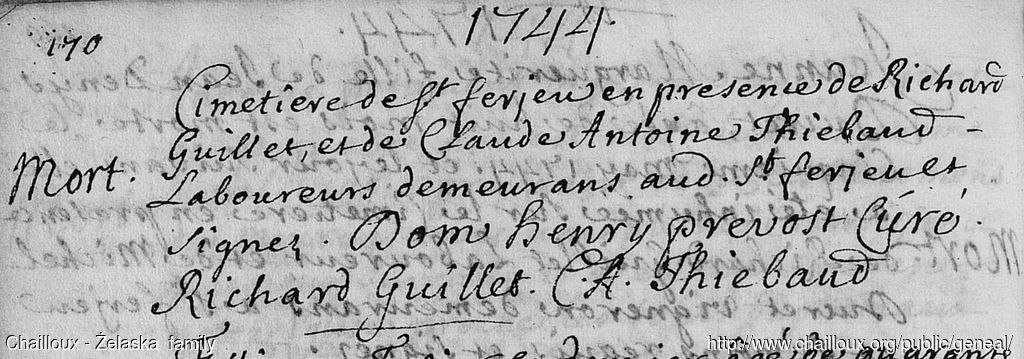 1744.
170
Cimetiere de St ferjeu en presence de Richard
Guillet, et de Claude Antoine Thiebaud -
Mort.
Laboureurs demeurans aud. St ferjeu et
signez. Dom henry prevost Curé.
Richard Guillet. C. A. Thiebaud
Chailloux - Żelaska family
http://www.chailloux.org/public/geneal/